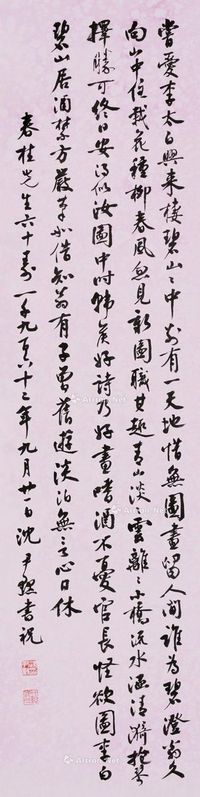 嘗愛李太白興來棲碧山〻中別有一天地惜無圖畫留人間誰為碧澄翁久
向山中住栽花種柳春風忽見新圖職其趣青山淡雲離〻小橋流水涵清漪抱琴
擇勝可終日安得似汝圖中時韓矦好詩乃好畫嗜酒不憂官長怪欲圖李白
碧山居酒禁方嚴不借知翁有子賈舊遊淡泊無言心日休
春桂先生六十壽一千九百六十二年九月廿一日沈尹默書祝
Artron.Net
Artron.Net